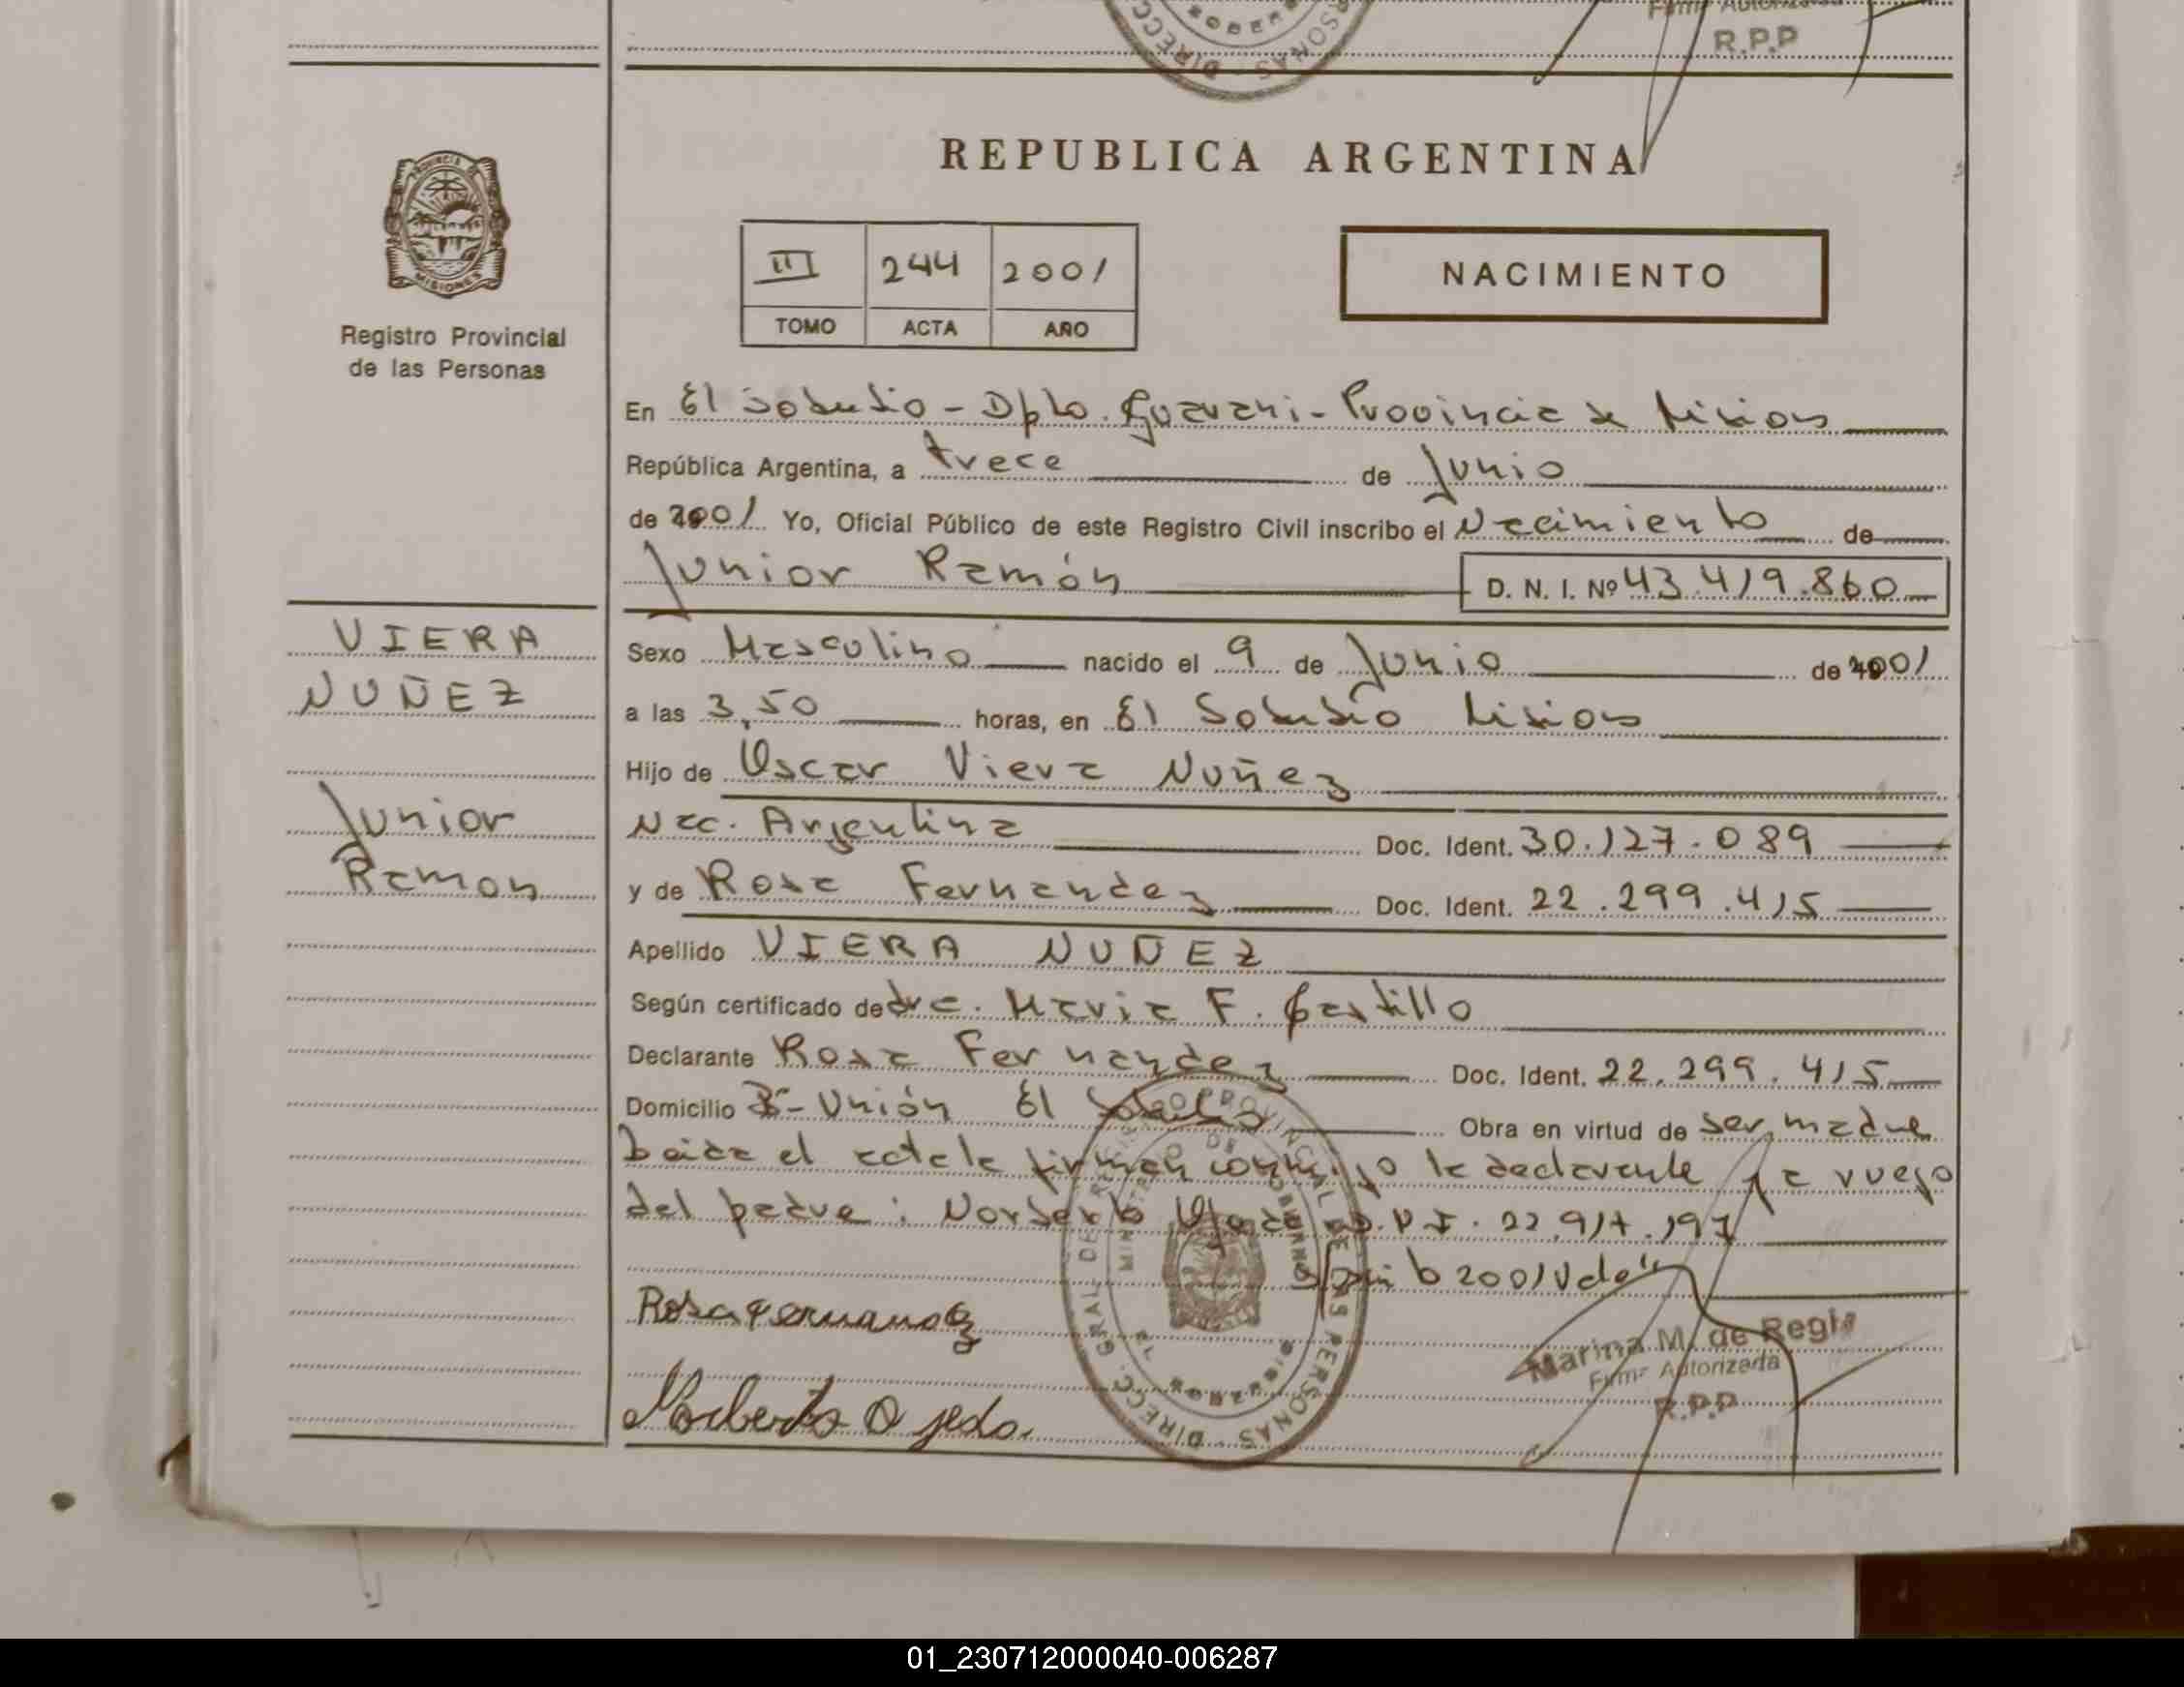 Firma Autorizada
R.P.P
REPUBLICA ARGENTINA
PROVINCIA
MISIONES
Registro Provincial
de las Personas
III 244 2001
TOMO ACTA AÑO
NACIMIENTO
En El Soberbio - Dpto. Guarani - Provincia de Misiones
República Argentina, a trece de Junio
de 2001 Yo, Oficial Público de este Registro Civil inscribo el Nacimiento de
Junior Ramón D. N. I. Nº 43.419.860
VIERA
NUÑEZ
Junior
Ramon
Sexo Masculino nacido el 9 de Junio de 2001
a las 3,50 horas, en El Soberbio Misiones
Hijo de Oscar Viera Nuñez
Nac. Argentina Doc. Ident. 30.127.089
y de Rosa Fernandez Doc. Ident. 22.299.415
Apellido VIERA NUÑEZ
Según certificado de dra. Maria F. Castillo
Declarante Rosa Fernandez Doc. Ident. 22.299.415
Domicilio Bº- Unión El Soberbio Obra en virtud de ser madre
Leida el acta la firman conmigo la declarante y a ruego
del padre: Norberto Ojeda D.N.I. 22.917.197
2001 Vale
Rosa Fernandez
Marina M. de Regis
Firma Autorizada
R.P.P
Norberto Ojeda
01_230712000040-006287